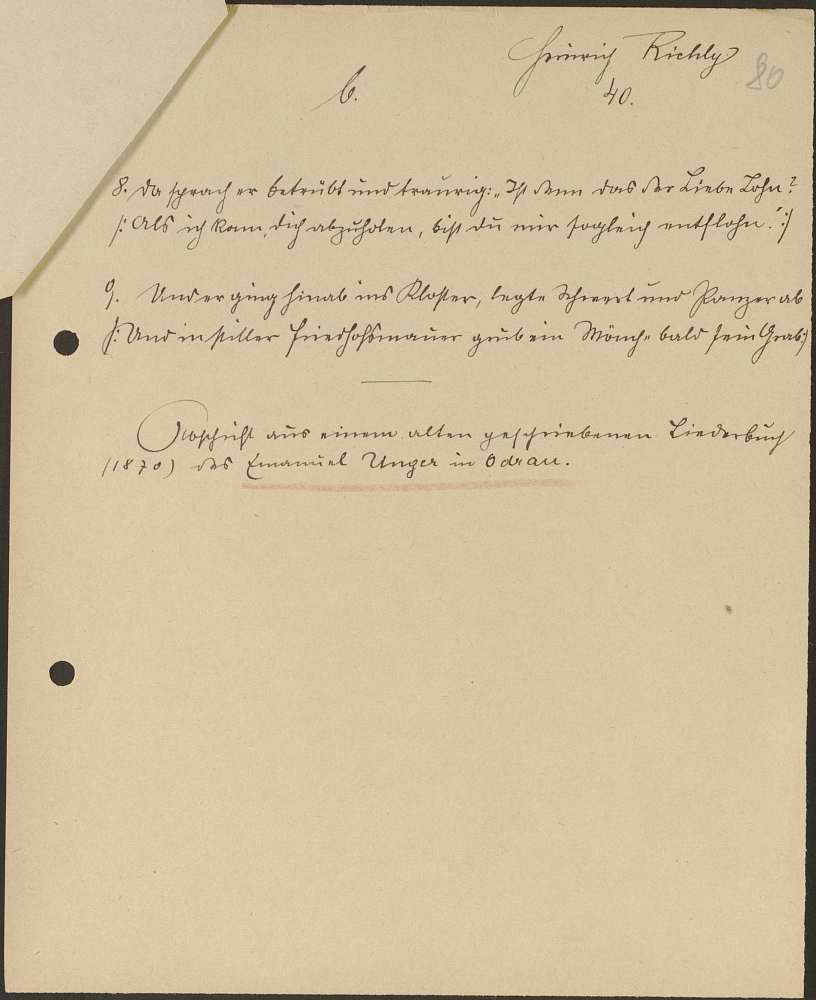 Heinrich Richly
80
b.
40.
8. Da sprach er betrübt und traurig: „Ist denn das der Liebe Lohn?
/: Als ich kam, dich abzuholen, bist du mir sogleich entflohn." :/
9. Und er ging hinab ins Kloster, legte Schwert und Panzer ab
/: Und in stiller Friedhofsmauer grub ein Mönch bald sein Grab :/
Abschrift aus einem alten geschriebenen Liederbuch
(1870) des Emanuel Unger in Odrau.